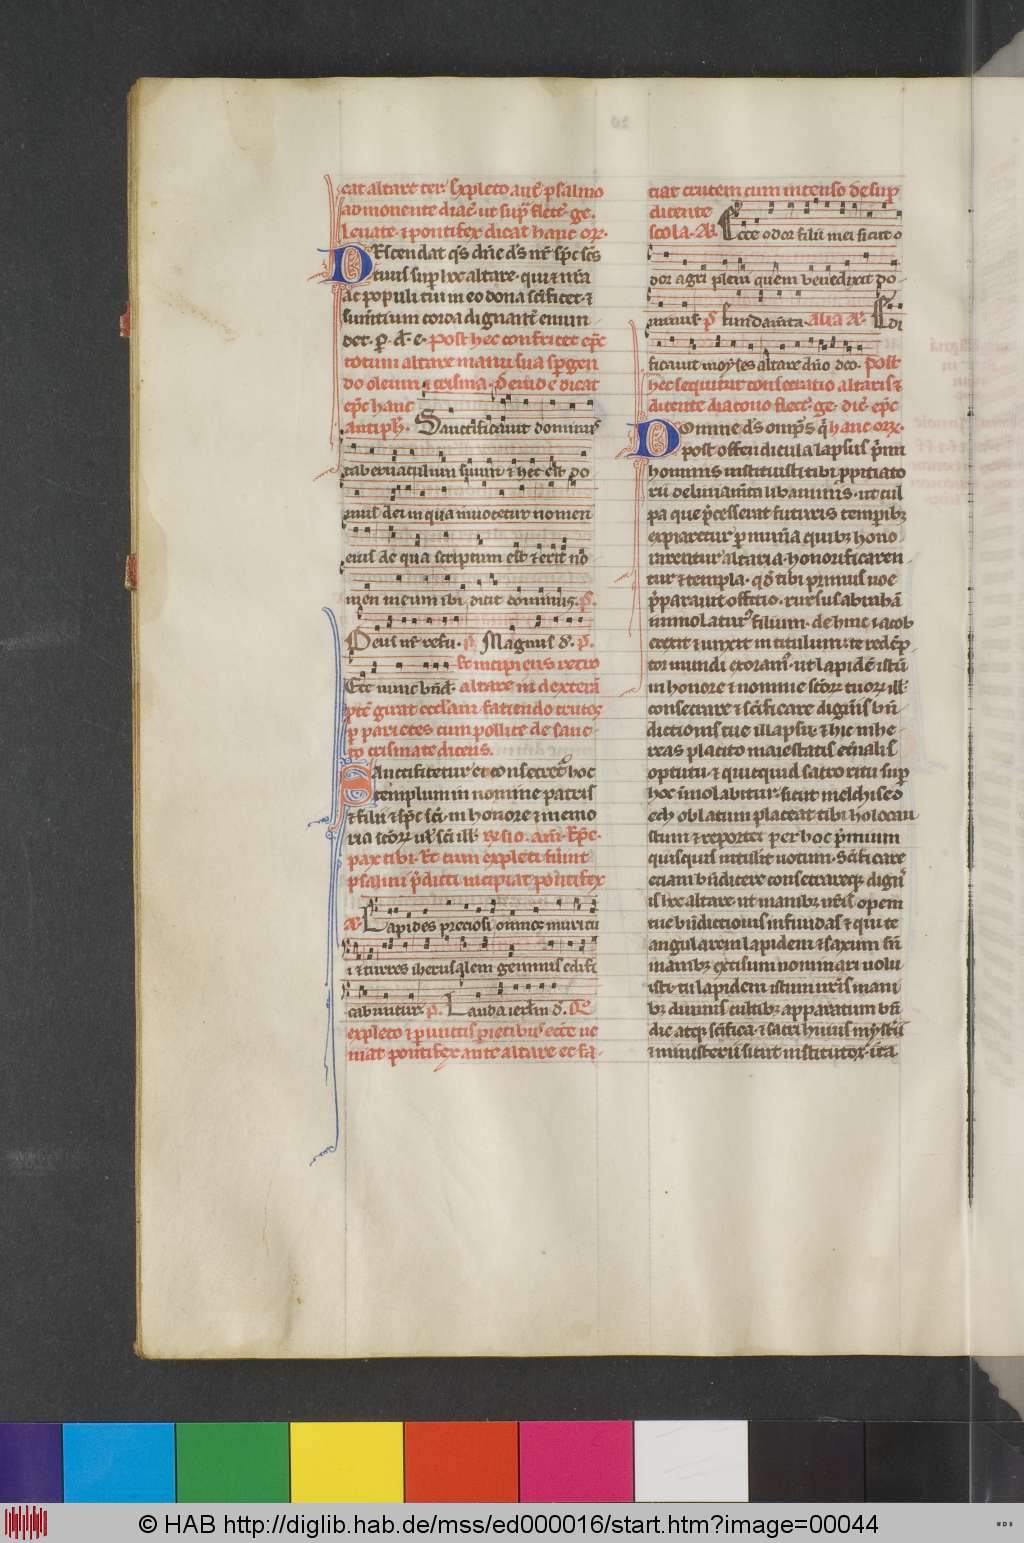 cat altare ter. Expleto aut psalmo
admonente diac ut sup flect ge.
Leuate. et pontifex dicat hanc orx.
DEscendat qs dne ds nr spc scs
tuus sup hoc altare. qui et nra
ac populi tui in eo dona scificet. et
sumentium corda dignanter emun
det. p. d. e. Post hec confricet epc
totum altare manu sua spgen
do oleum et crisma. Deinde dicat
epc hanc
antiph. Sanctificauit dominus
tabernaculum suum et hec est do
mus dei in qua inuocetur nomen
eius de qua scriptum est et erit no
men meum ibi dicit dominus. p.
Deus nr refu. p Magnus d. p.
Ecce nunc bnd. Et incipiens retro
altare in dexteram
ptem girat ecclam faciendo cruces
p parietes cum pollice de sanc
to crismate dicens.
SAnctificetur et consecretur hoc
templum in nomine patris
et filii et spc sci. in honore et memo
ria scorum ul sci ill. Rsio. am. Epc.
pax tibi. Et cum expleti fuerint
psalmi pdicti incipiat pontifex
a. Lapides preciosi omnes muri tu
i et turres iherusalem gemmis edifi
cabuntur. p. Lauda ierlm d. Quo
expleto et puentis pietibus ecce ue
niat pontifex ante altare et fa
ciat crucem cum incenso desup
dicente
scola. A. Ecce odor filii mei sicut o
dor agri pleni quem benedixit do
minus. p fundamta. Alia A. Edi
ficauit moyses altare dno deo. Post
hec sequitur consecratio altaris et
dicente diacono flect. ge. dic epc
DOmine ds omps q hanc orx.
post offendicula lapsus pmi
hominis instituisti tibi ppitiato
rii delinimta libaminis. ut cul
pa que pcesserat futuris temporibus
expiaretur p munera quibus hono
rarentur altaria. honorificaren
tur et templa. qd tibi primus noe
pparauit officio. rursus abraham
immolatur filium. dehinc iacob
erexit et unxit in titulum. te redemp
tor mundi exoramus. ut lapidem istum
in honore et nomine scorum tuorum ill.
consecrare et scificare digneris bn
dictionis tue illapsu. et hic inhe
reas placito maiestatis eternalis
optutu. et quicquid sacro ritu sup
hoc immolabitur. sicut melchised
ech oblatum placeat tibi holocau
stum et reportet per hoc premium
quisquis intulit uotum. Scificare
etiam bndicere consecrareque digne
is hoc altare ut manibus nris opem
tue bndictionis infundas. et qui te
angularem lapidem et saxum sine
manibus excisum nominari uolu
isti. tu lapidem istum nris mani
bus diuinis cultibus apparatum bn
dic atque scifica. et sacri huius mysterii
et ministerii sicut institutor. ita
© HAB http://diglib.hab.de/mss/ed000016/start.htm?image=00044